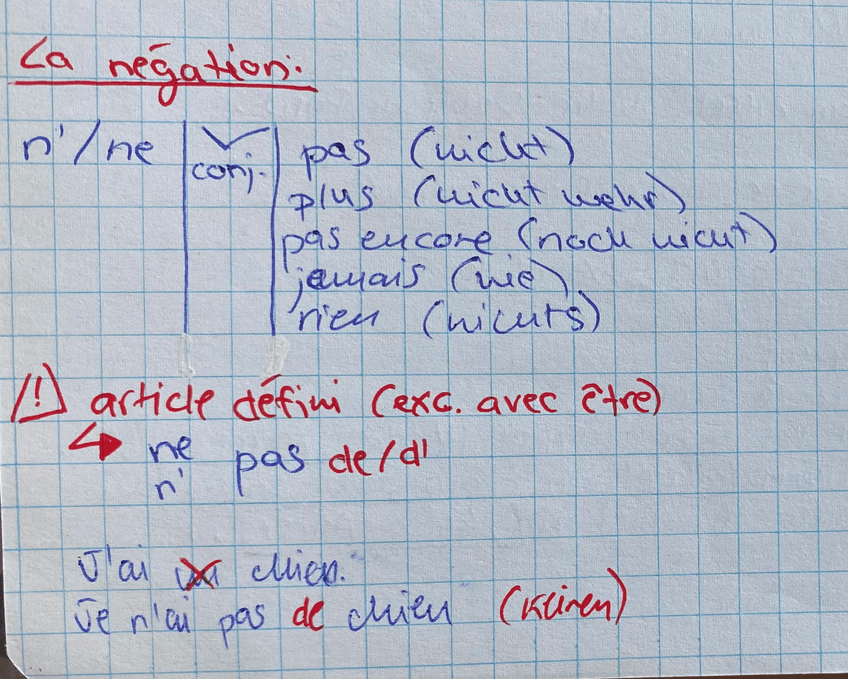 La négation:
n'/ne | V conj. | pas (nicht)
plus (nicht mehr)
pas encore (noch nicht)
jamais (nie)
rien (nichts)
/!\ article défini (exc. avec être)
↳ ne n' pas de/d'
J'ai un chien.
Je n'ai pas de chien (keinen)